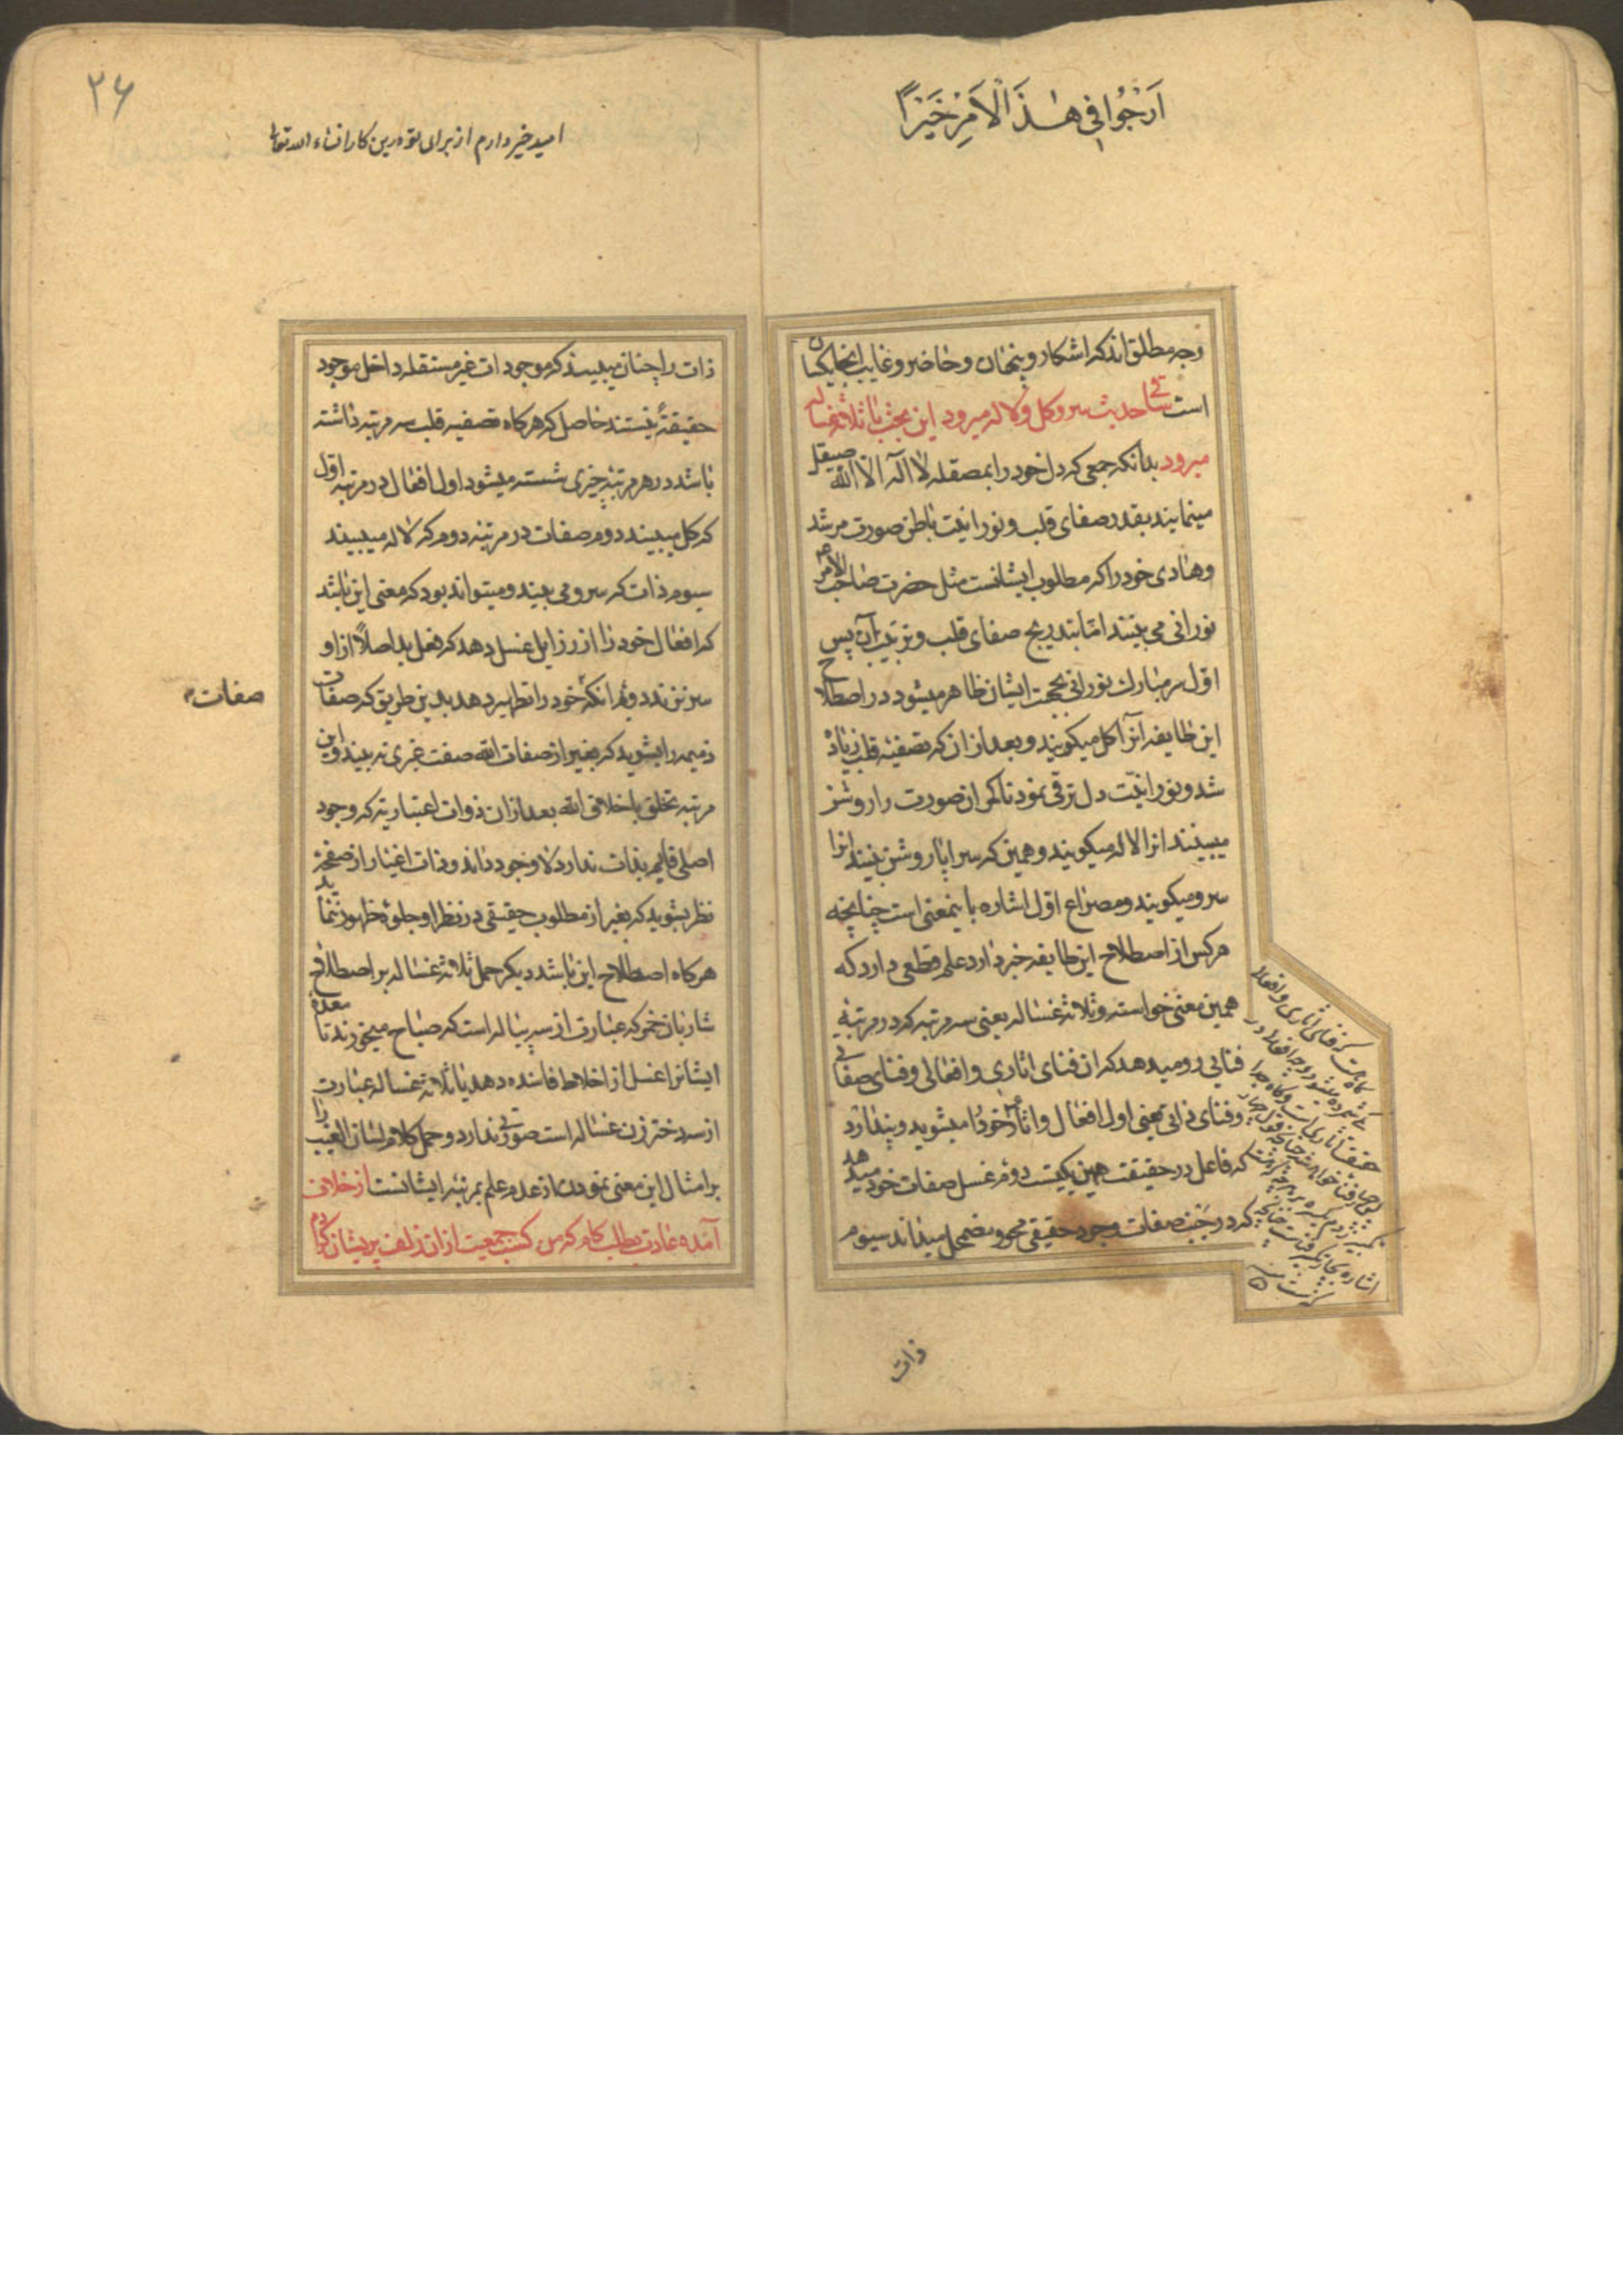 اَرْجُوا فِی هٰذَا الْاَمْرِ خَیْرًا
وجه مطلق اند که اشکار و پنهان و حاضر و غایب اینجا یکسان
است ساقی حدیث سرو و گل و لاله میرود این بحث با ثلاثه غساله
میرود بدانکه جمعی که دل خود را بمصقله لا اله الا الله صیقل
مینمایند بقدر صفای قلب و نورانیت باطن صورت مرشد
و هادی خود را که مطلوب ایشانست مثل حضرت صاحب الامر
نورانی می بینند اما بتدریج صفای قلب و ترتیب آن پس
اول سر مبارک نورانی بحجت ایشان ظاهر میشود در اصطلاح
این طایفه آنرا گل میگویند و بعد از ان که تصفیه قلب زیاده
شد و نورانیت دل ترقی نمود تا کمر ان صورت را روشن
میبینند انرا لاله میگویند و همین که سراپا روشن بینند انرا
سرو میگویند و مصراع اول اشاره باینمعنی است چنانچه
هر کس از اصطلاح این طایفه خبر دارد علم قطعی دارد که
همین معنی خواسته و ثلاثه غساله یعنی سه مرتبه که در مرتبه
فنایی رو میدهد که ان فنای اثاری و افعالی و فنای صفاتی
و فنای ذاتی یعنی اول افعال و اثار خود را میشوید و پندارد
که فاعل در حقیقت همین یکیست دوم غسل صفات خود میدهد
که در جنب صفات وجود حقیقی محو و مضمحل میداند سیوم
که فنای اثاری و افعالی
ذات
۲۶
امید خیر دارم از برای تو درین کار انشاء الله تعالی
ذات را چنان میبیند که موجودات غیر مستقله داخل موجود
حقیقة نیستند حاصل که هرگاه تصفیه قلب سه مرتبه داشته
باشد در هر مرتبه چیزی شسته میشود اول افعال در مرتبه اول
که گل میبیند دوم صفات در مرتبه دوم که لاله میبیند
سیوم ذات که سرو می بیند و میتواند بود که معنی این باشد
که افعال خود را از رزایل غسل دهد که فعل بد اصلاً از او
سر نزند دوم انکه خود را تطهیر دهد بدین طریق که صفات
صفات
ذمیمه را بشوید که بغیر از صفات الله صفت غیری نه بیند و این
مرتبه تخلق باخلاق الله بعد از ان ذوات اعتباریه که وجود
اصلی قایم بذات ندارد لا وجود داند و ذات اغیار از صفحه
نظر بشوید که بغیر از مطلوب حقیقی در نظر او جلوه ظهور ننماید
هرگاه اصطلاح این باشد دیگر حمل ثلاثه غساله بر اصطلاح
شاربان خمر که عبارت از سه پیاله است که صباح میخورند تا معده
ایشانرا غسل از اخلاط فاسده دهد یا ثلاثه غساله عبارت
از سه دختر زن غساله است صورتی ندارد و حمل کلام لسان الغیب را
بر امثال این معنی نمودن از عدم علم بمرتبه ایشانست از خلاف
آمده عادت بطلب کام که من کسب جمعیت از ان زلف پریشان کردم